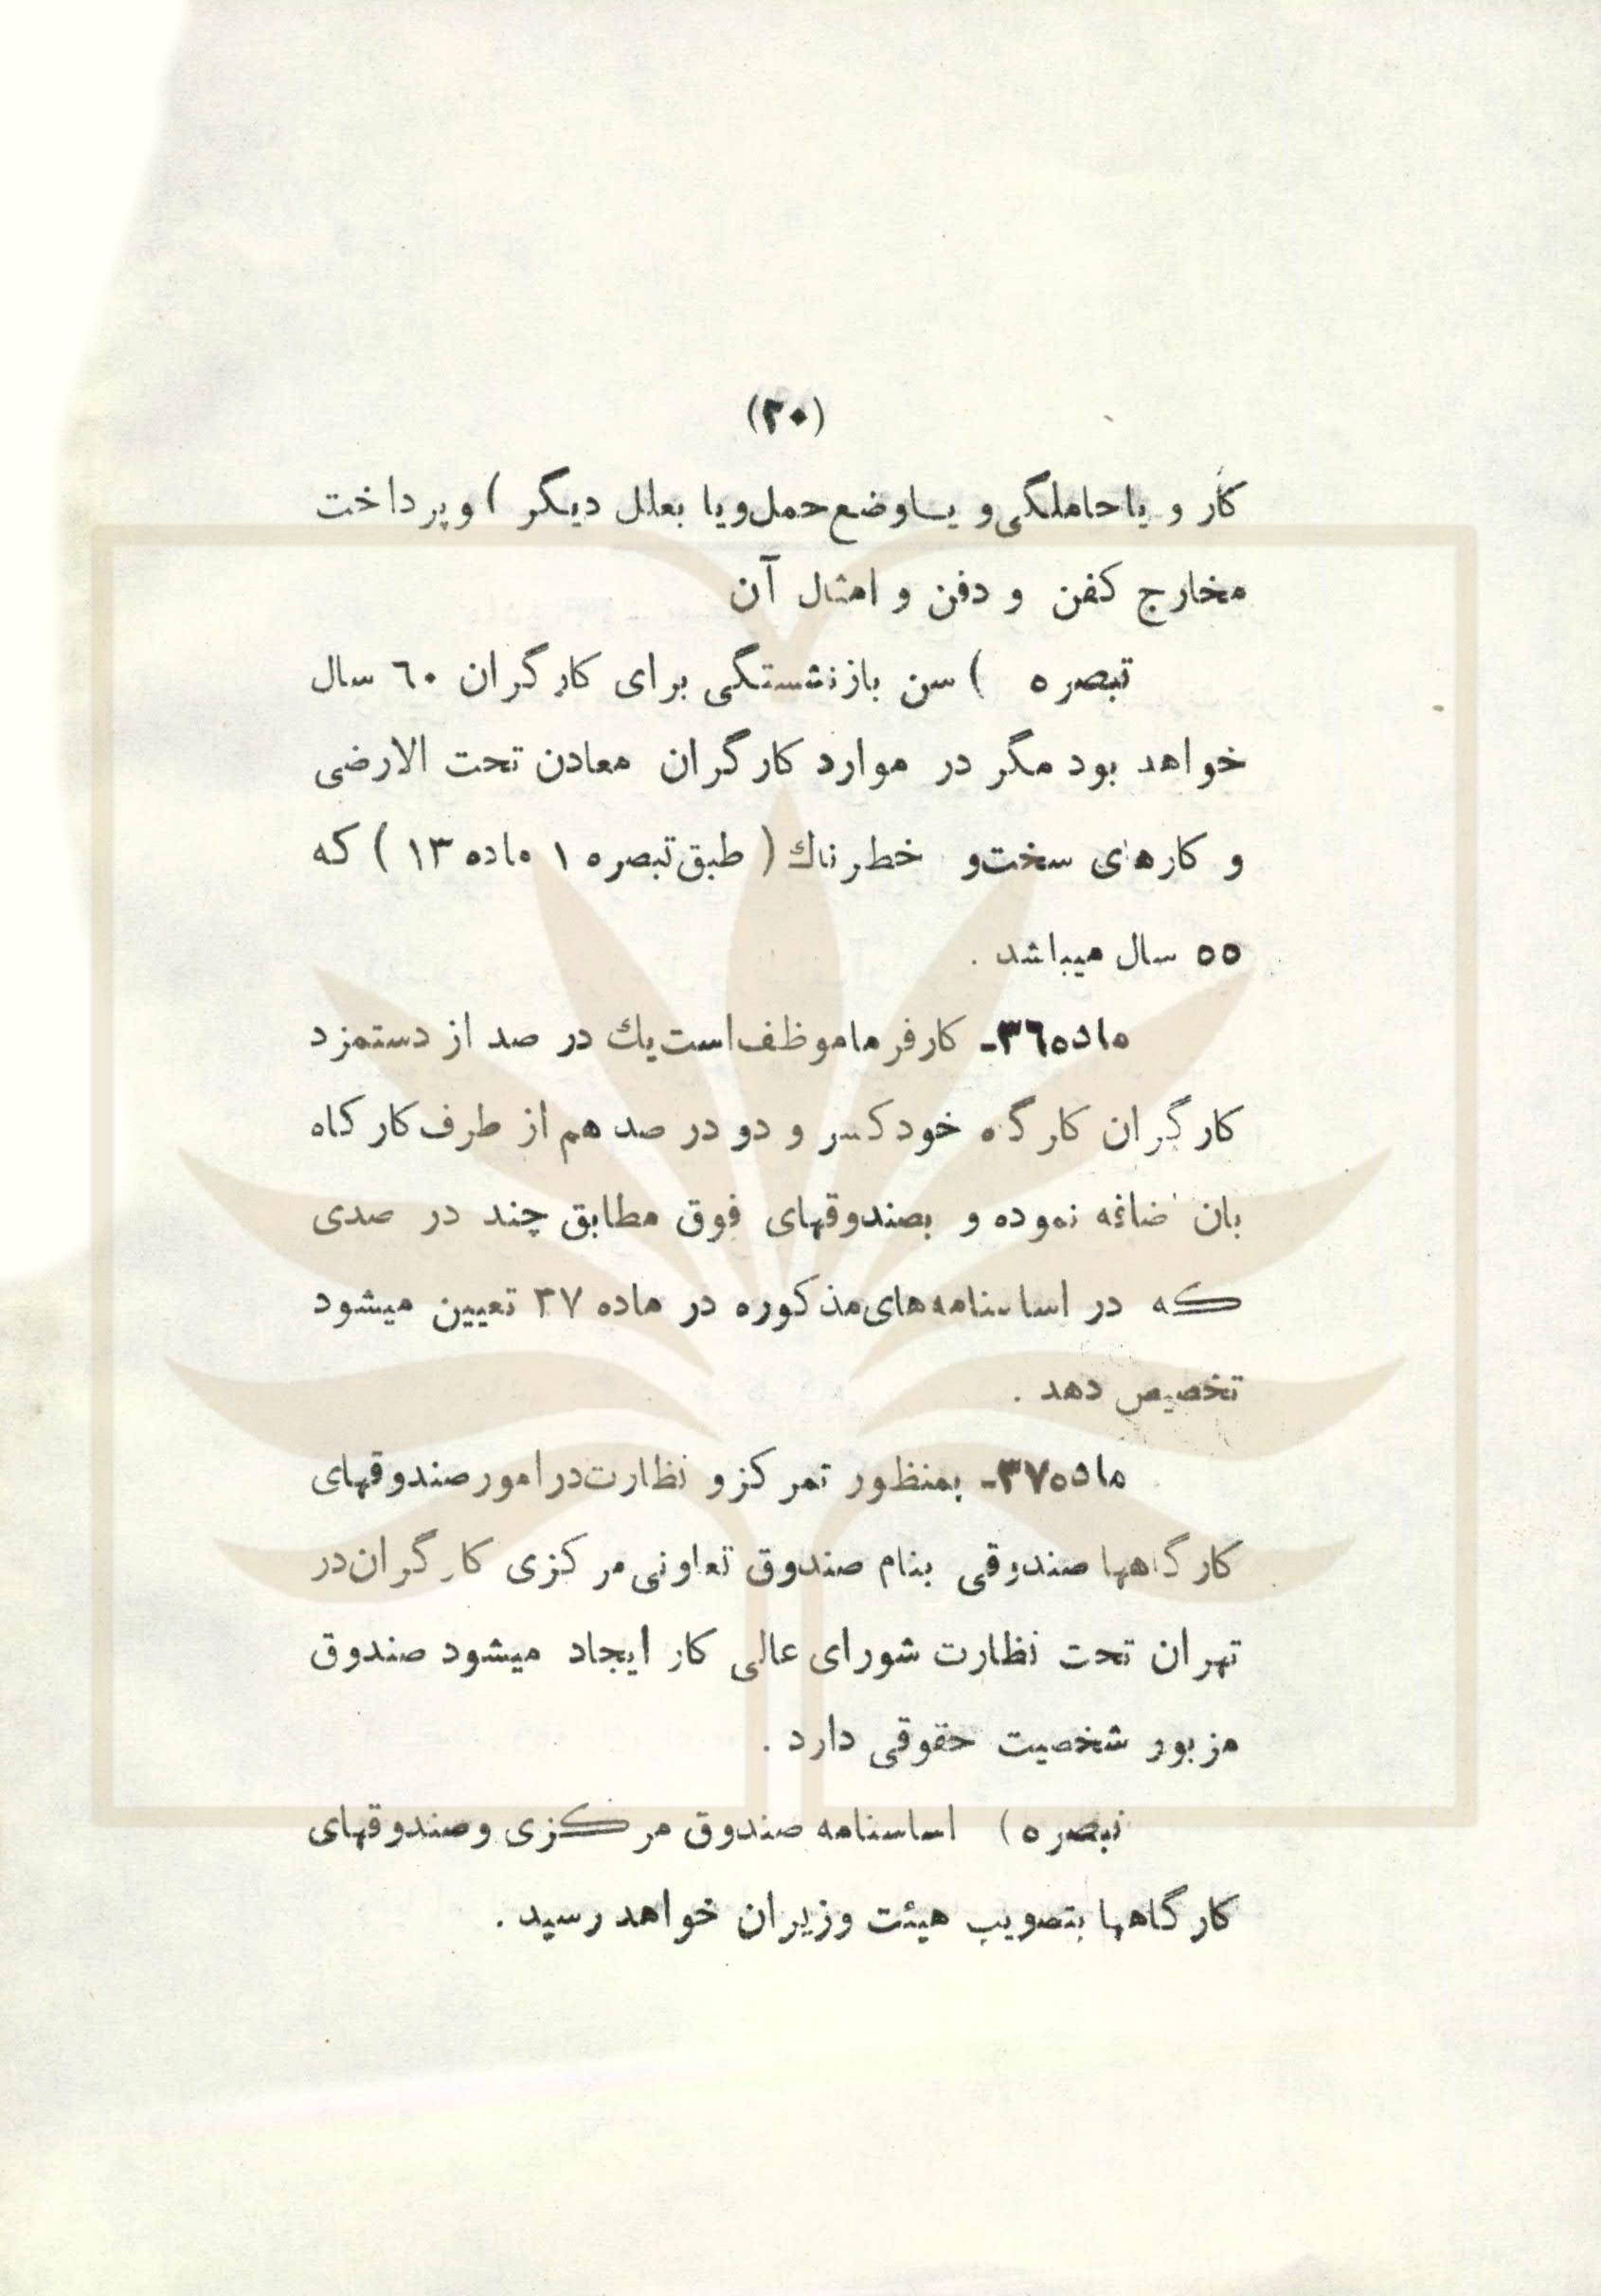 (۲۰)
کار و یا حاملگی و یا وضع حمل و یا بعلل دیگر ) و پرداخت
مخارج کفن و دفن و امثال آن
تبصره ) سن بازنشستگی برای کارگران ٦۰ سال
خواهد بود مگر در موارد کارگران معادن تحت الارضی
و کارهای سخت و خطرناك ( طبق تبصره ۱ ماده ۱۳ ) که
٥٥ سال میباشد .
ماده ۳٦ـ کارفرما موظف است يك در صد از دستمزد
کارگران کارگه خود کسر و دو در صد هم از طرف کارگاه
بان ضافه نموده و بصندوقهای فوق مطابق چند در صدی
که در اساسنامه‌های مذکوره در ماده ۳۷ تعیین میشود
تخصیص دهد .
ماده ۳۷ـ بمنظور تمرکز و نظارت در امور صندوقهای
کارگاهها صندوقی بنام صندوق تعاونی مرکزی کارگران در
تهران تحت نظارت شورای عالی کار ایجاد میشود صندوق
مزبور شخصیت حقوقی دارد .
تبصره ) اساسنامه صندوق مرکزی و صندوقهای
کارگاهها بتصویب هیئت وزیران خواهد رسید .